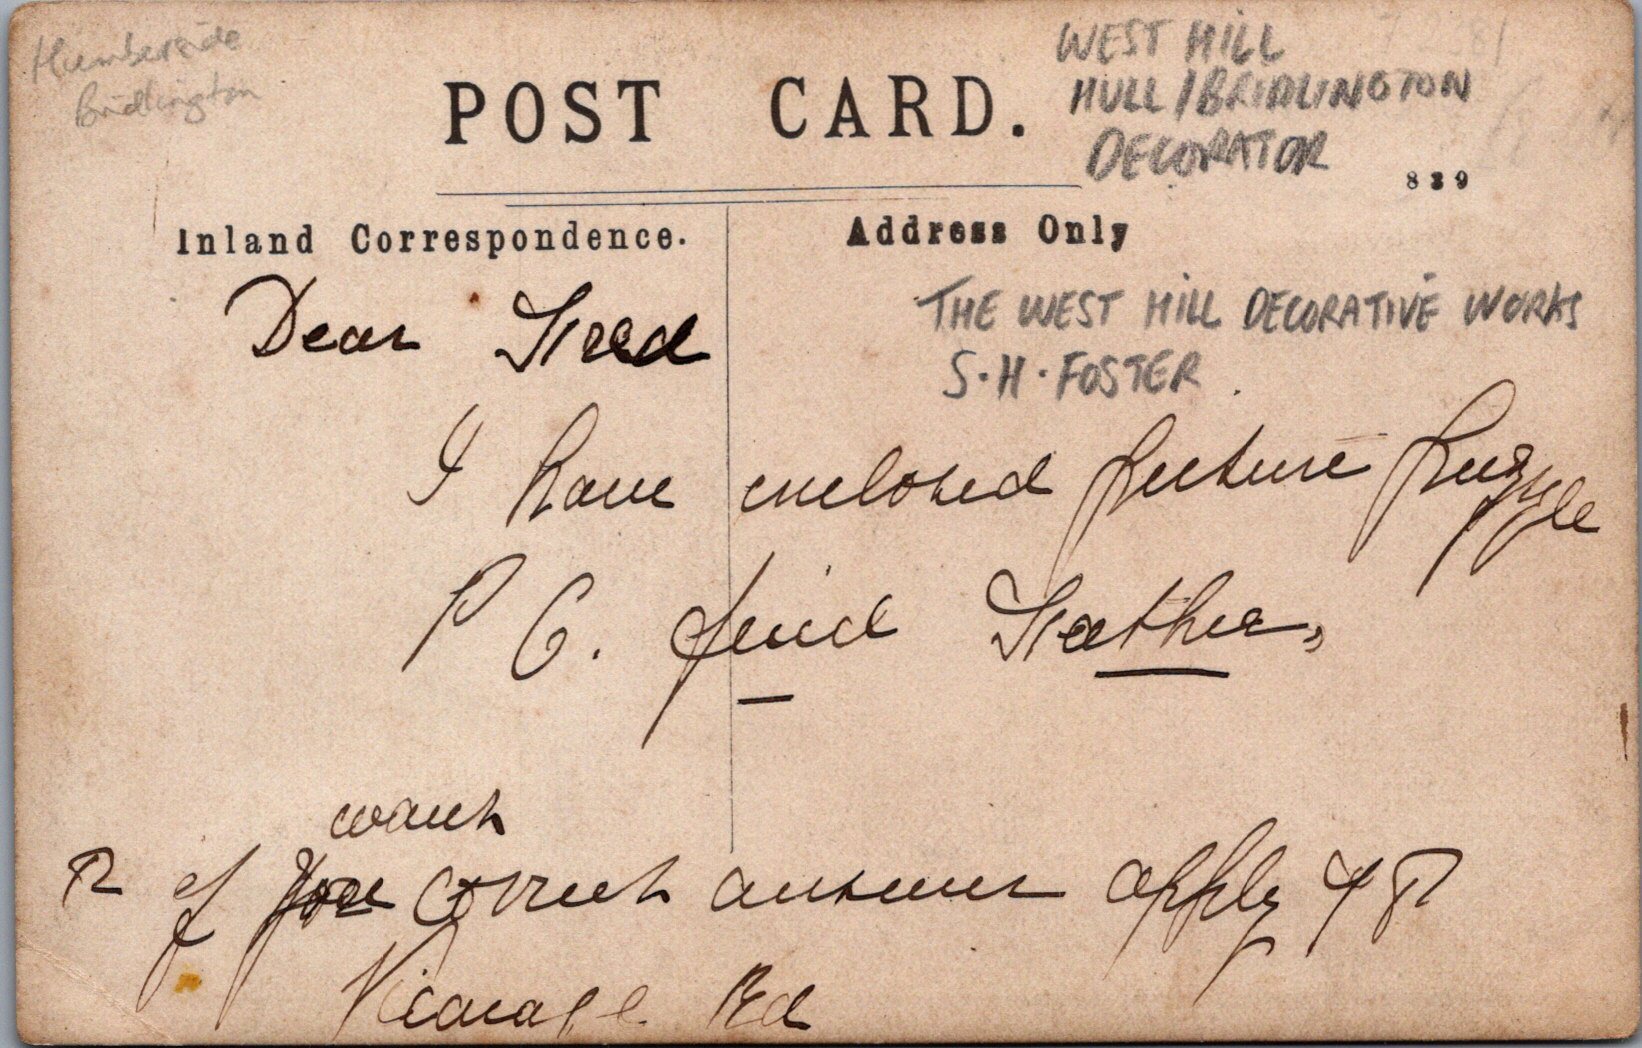 Humberside
Bridlington
WEST HILL
HULL / BRIDLINGTON
DECORATOR
POST CARD.
839
Inland Correspondence.
Address Only
THE WEST HILL DECORATIVE WORKS
S. H. FOSTER
Dear Fred
I have enclosed picture Puzzle
P C. find Father,
want
If you correct answer apply
Vicarage Rd